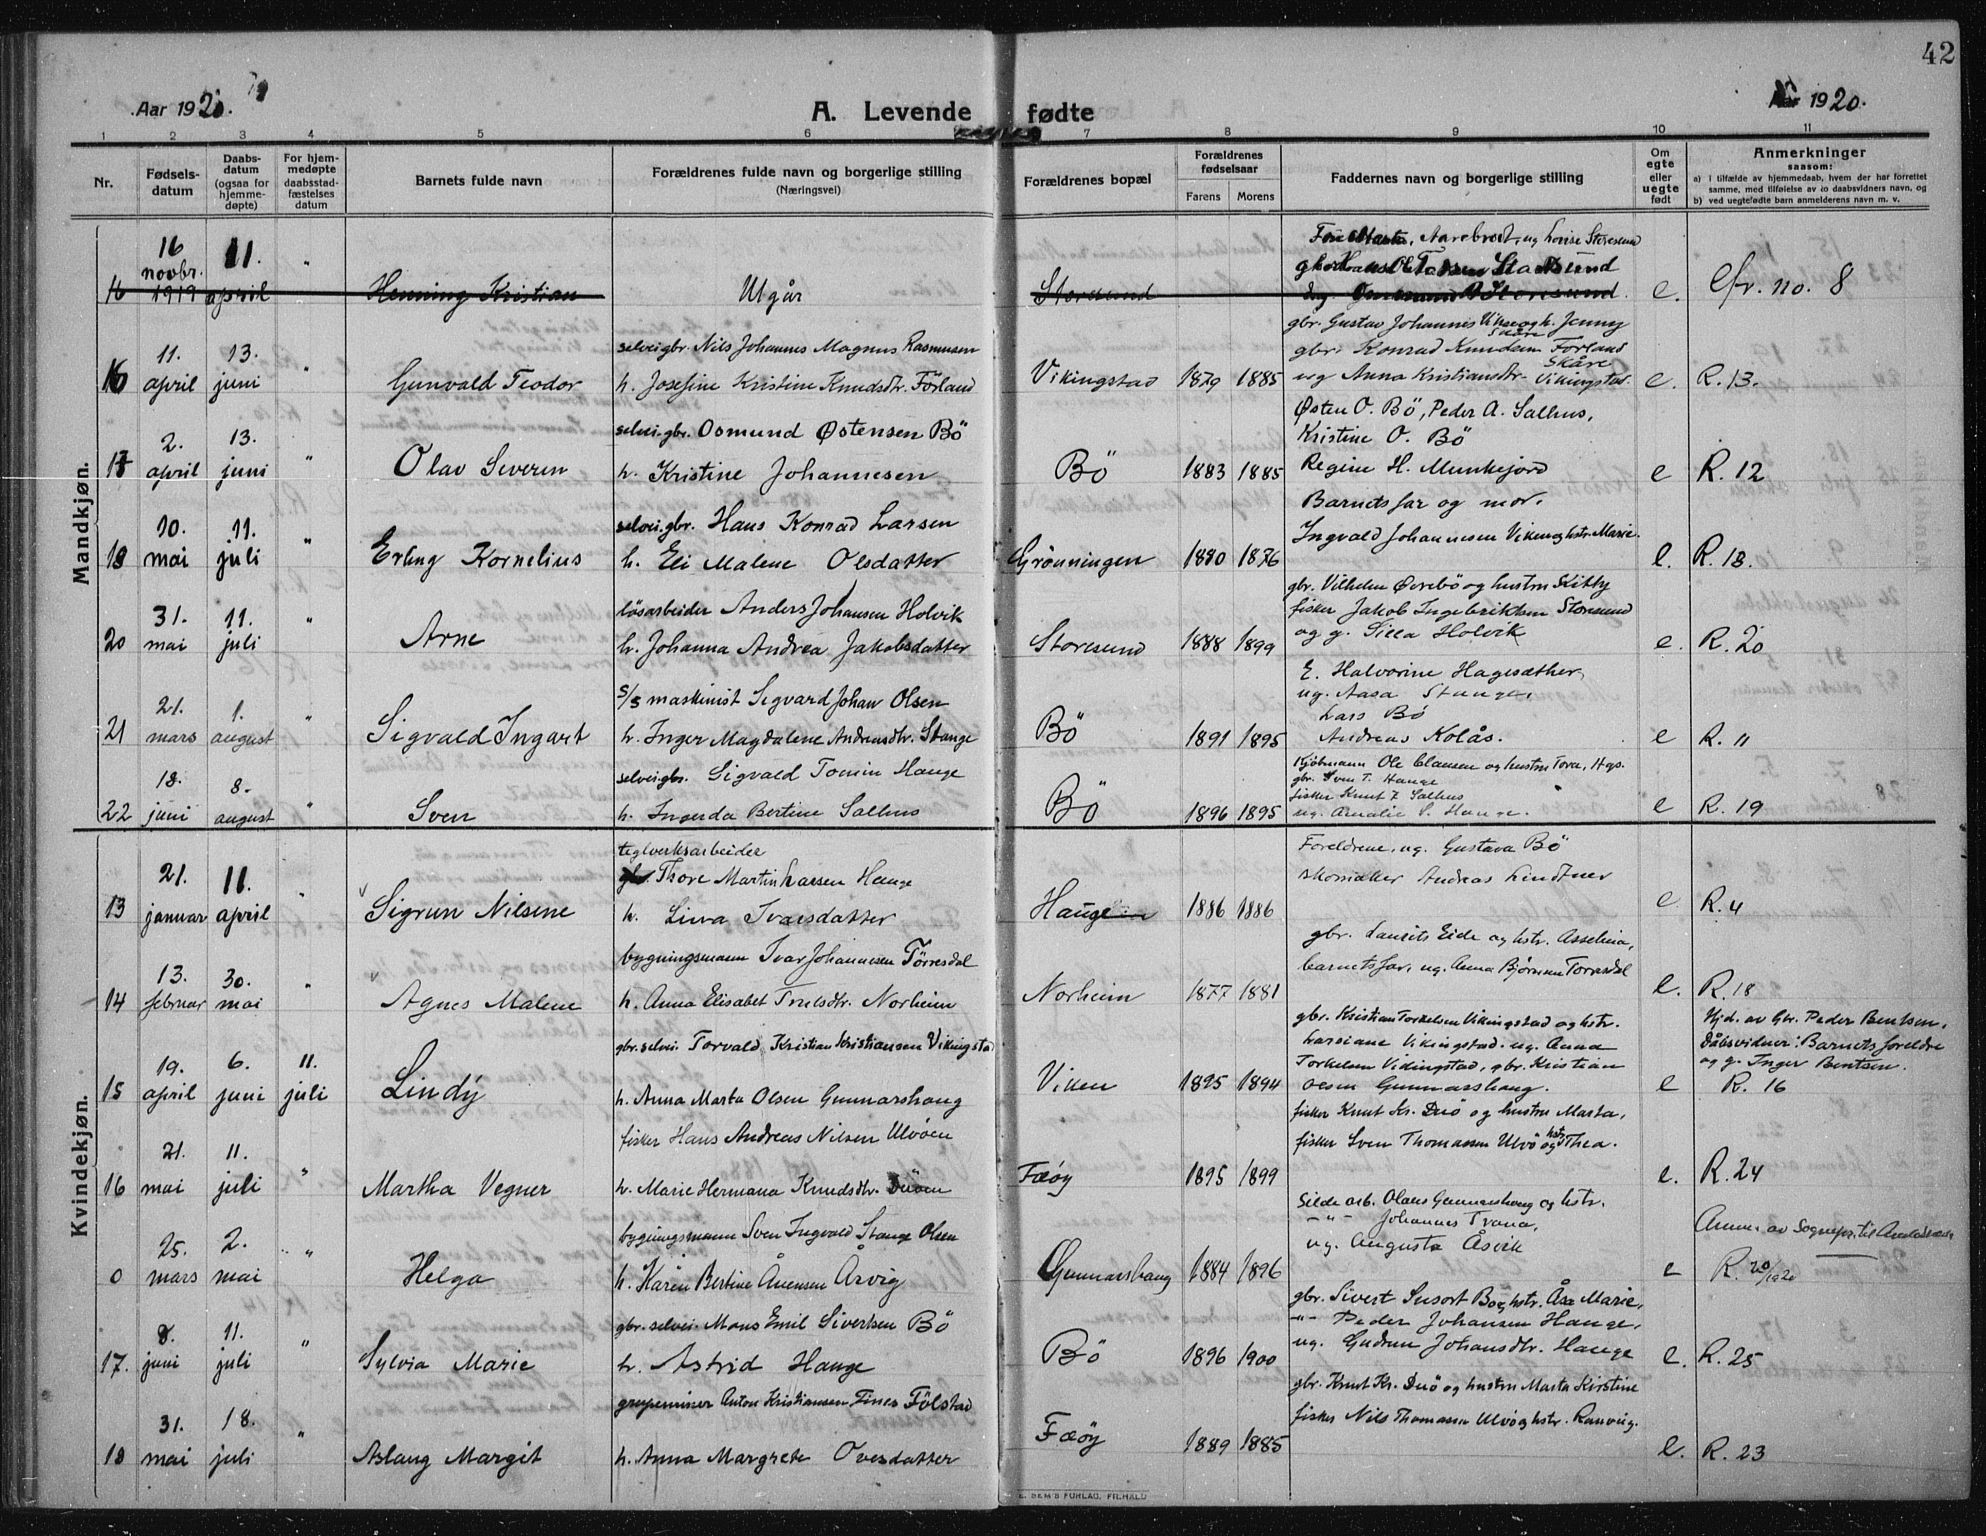 42
Aar 1920.
A. Levende fødte
Aar 1920.
1 2 3 4 5 6 7 8 9 10 11
Nr.
Fødsels-
datum
Daabs-
datum
(ogsaa for
hjemme-
døpte)
For hjem-
medøpte
daabsstad-
fæstelses
datum
Barnets fulde navn
Forældrenes fulde navn og borgerlige stilling
(Næringsvei)
Forældrenes bopæl
Forældrenes
fødselsaar
Farens Morens
Faddernes navn og borgerlige stilling
Om
egte
eller
uegte
født
Anmerkninger
saasom:
a) i tilfælde av hjemmedaab, hvem der har forrettet
samme, med tilføielse av to daabsvidners navn, og
b) ved uegtefødte barn anmelderens navn m. v.
Mandkjøn.
16 novbr. 1919 11. april " Henning Kristian Utgår Storesund e. Cfr. no. 8
16 11. april 13. juni " Gunvald Teodor
selvei.gbr. Nils Johannes Magnus Rasmussen
h. Josefine Kristine Knudsdtr. Førland
Vikingstad 1879 1885
gbr. Konrad Knudsen Førland
og Anna Kristiansdtr. Vikingstad.
e. R. 13.
17 2. april 13. juni " Olav Severin
selvei.gbr. Osmund Østensen Bö
h. Kristine Johannesen
Bö 1883 1885
Østen O. Bö, Peder A. Salhus,
Kristine O. Bö
Regine H. Munkejord
e R. 12
19 10. mai 11. juli " Erling Kornelius
selvei.gbr. Hans Konrad Larsen
h. Eli Malene Olsdatter
Grønningen 1880 1876
Barnets far og mor.
Ingvald Johannesen Viken og hstr. Marie.
e. R. 18.
20 31. mai 11. juli " Arne
løsarbeider Anders Johansen Holvik
h. Johanna Andrea Jakobsdatter
Storesund 1888 1899
gbr. Vilhelm Øvrebö og hustru Kitty
fisker Jakob Ingebriktsen Storesund
og g. Silla Holvik
e. R. 20
21 21. mars 1. august " Sigvald Ingart
s/s maskinist Sigvard Johan Olsen
h. Inger Magdalene Andreasdtr. Stange
Bö 1891 1895
E. Halvorine Hagesæther,
ug. Aasa Stange,
Lars Bö
Andreas Kolås.
e R. 11
22 18. juni 8. august " Sven
selvei.gbr. Sigvald Tomin Hauge
h. Ingerda Bertine Salhus
Bö 1896 1895
Kjöbmann Ole Clausen og hustru Tora, Hgs.
gbr. Sven T. Hauge
fisker Knut Salhus
ug. Amalie S. Hauge.
e R. 19
Kvindekjøn.
13 21. januar 11. april " Sigrun Nilsine
teglverksarbeider
Thore Martin Larsen Hauge
h. Lina Ivarsdatter
Hauge 1886 1886
Foreldrene, ug. Gustava Bö
skomaker Andreas Lindtner
e R. 4
14 13. februar 30. mai " Agnes Malene
bygningsmann Ivar Johannesen Törresdal
h. Anna Elisabet Trulsdtr. Norheim
Norheim 1877 1881
gbr. Laurits Eide og hstr. Asseline,
barnets far, ug. Anna Björnsen Torresdal
e. R. 18
15 19. april 6. juni 11. juli Lindy
gbr. selvei. Torvald Kristian Kristiansen Vikingstad
h. Anna Marta Olsen Gunnarshaug
Viken 1895 1894
gbr. Kristian Torkelsen Vikingstad og hstr.
Larsiane Vikingstad. ug. Anna
Torkelsen Vikingstad, gbr. Kristian
Olsen Gunnarshaug.
e
Hjd. av Gbr. Peder Bentsen.
Dåbsvidner: Barnets foreldre
og g. Inger Bentsen.
R. 16
16 21. mai 11. juli " Martha Vegner
fisker Hans Andreas Nilsen Ulvöen
h. Marie Hermana Knudsdtr. Duöen
Fæöy 1895 1899
fisker Knut Kr. Duö og hustru Marta,
fisker Sven Thomassen Ulvö og hstr. Thea.
e. R. 24
0 25. mars 2. mai " Helga
bygningsmann Sven Ingvald Stange Olsen
h. Karen Bertine Åvensen Årvig
Gunnarshaug 1884 1896
Silde arb. Olaus Gunnarshaug og hstr.
-"- Johannes Tvana,
ug. Augusta Åsvik
e
Anm. av Sognepr. til Avaldsnes
R. 20/1920
17. 8. juni 11. juli " Sylvia Marie
gbr. selvei. Mons Emil Sivertsen Bö
h. Astrid Hauge
Bö 1896 1900
gbr. Sivert Susort Bö og hstr. Åsa Marie,
-"- Peder Johansen Hauge,
ug. Gudrun Johansdtr. Hauge
e. R. 25
18 31. mai 18. juli " Aslaug Margit
grubeminer Anton Kristiansen Fines Fölstad
h. Anna Margrete Ovesdatter
Fæöy 1889 1885
gbr. Knut Kr. Duö og hustru Marta Kirstine
fisker Nils Thomassen Ulvö og hstr. Ranveig.
e. R. 23
E. SEM'S FORLAG, FR.HALD